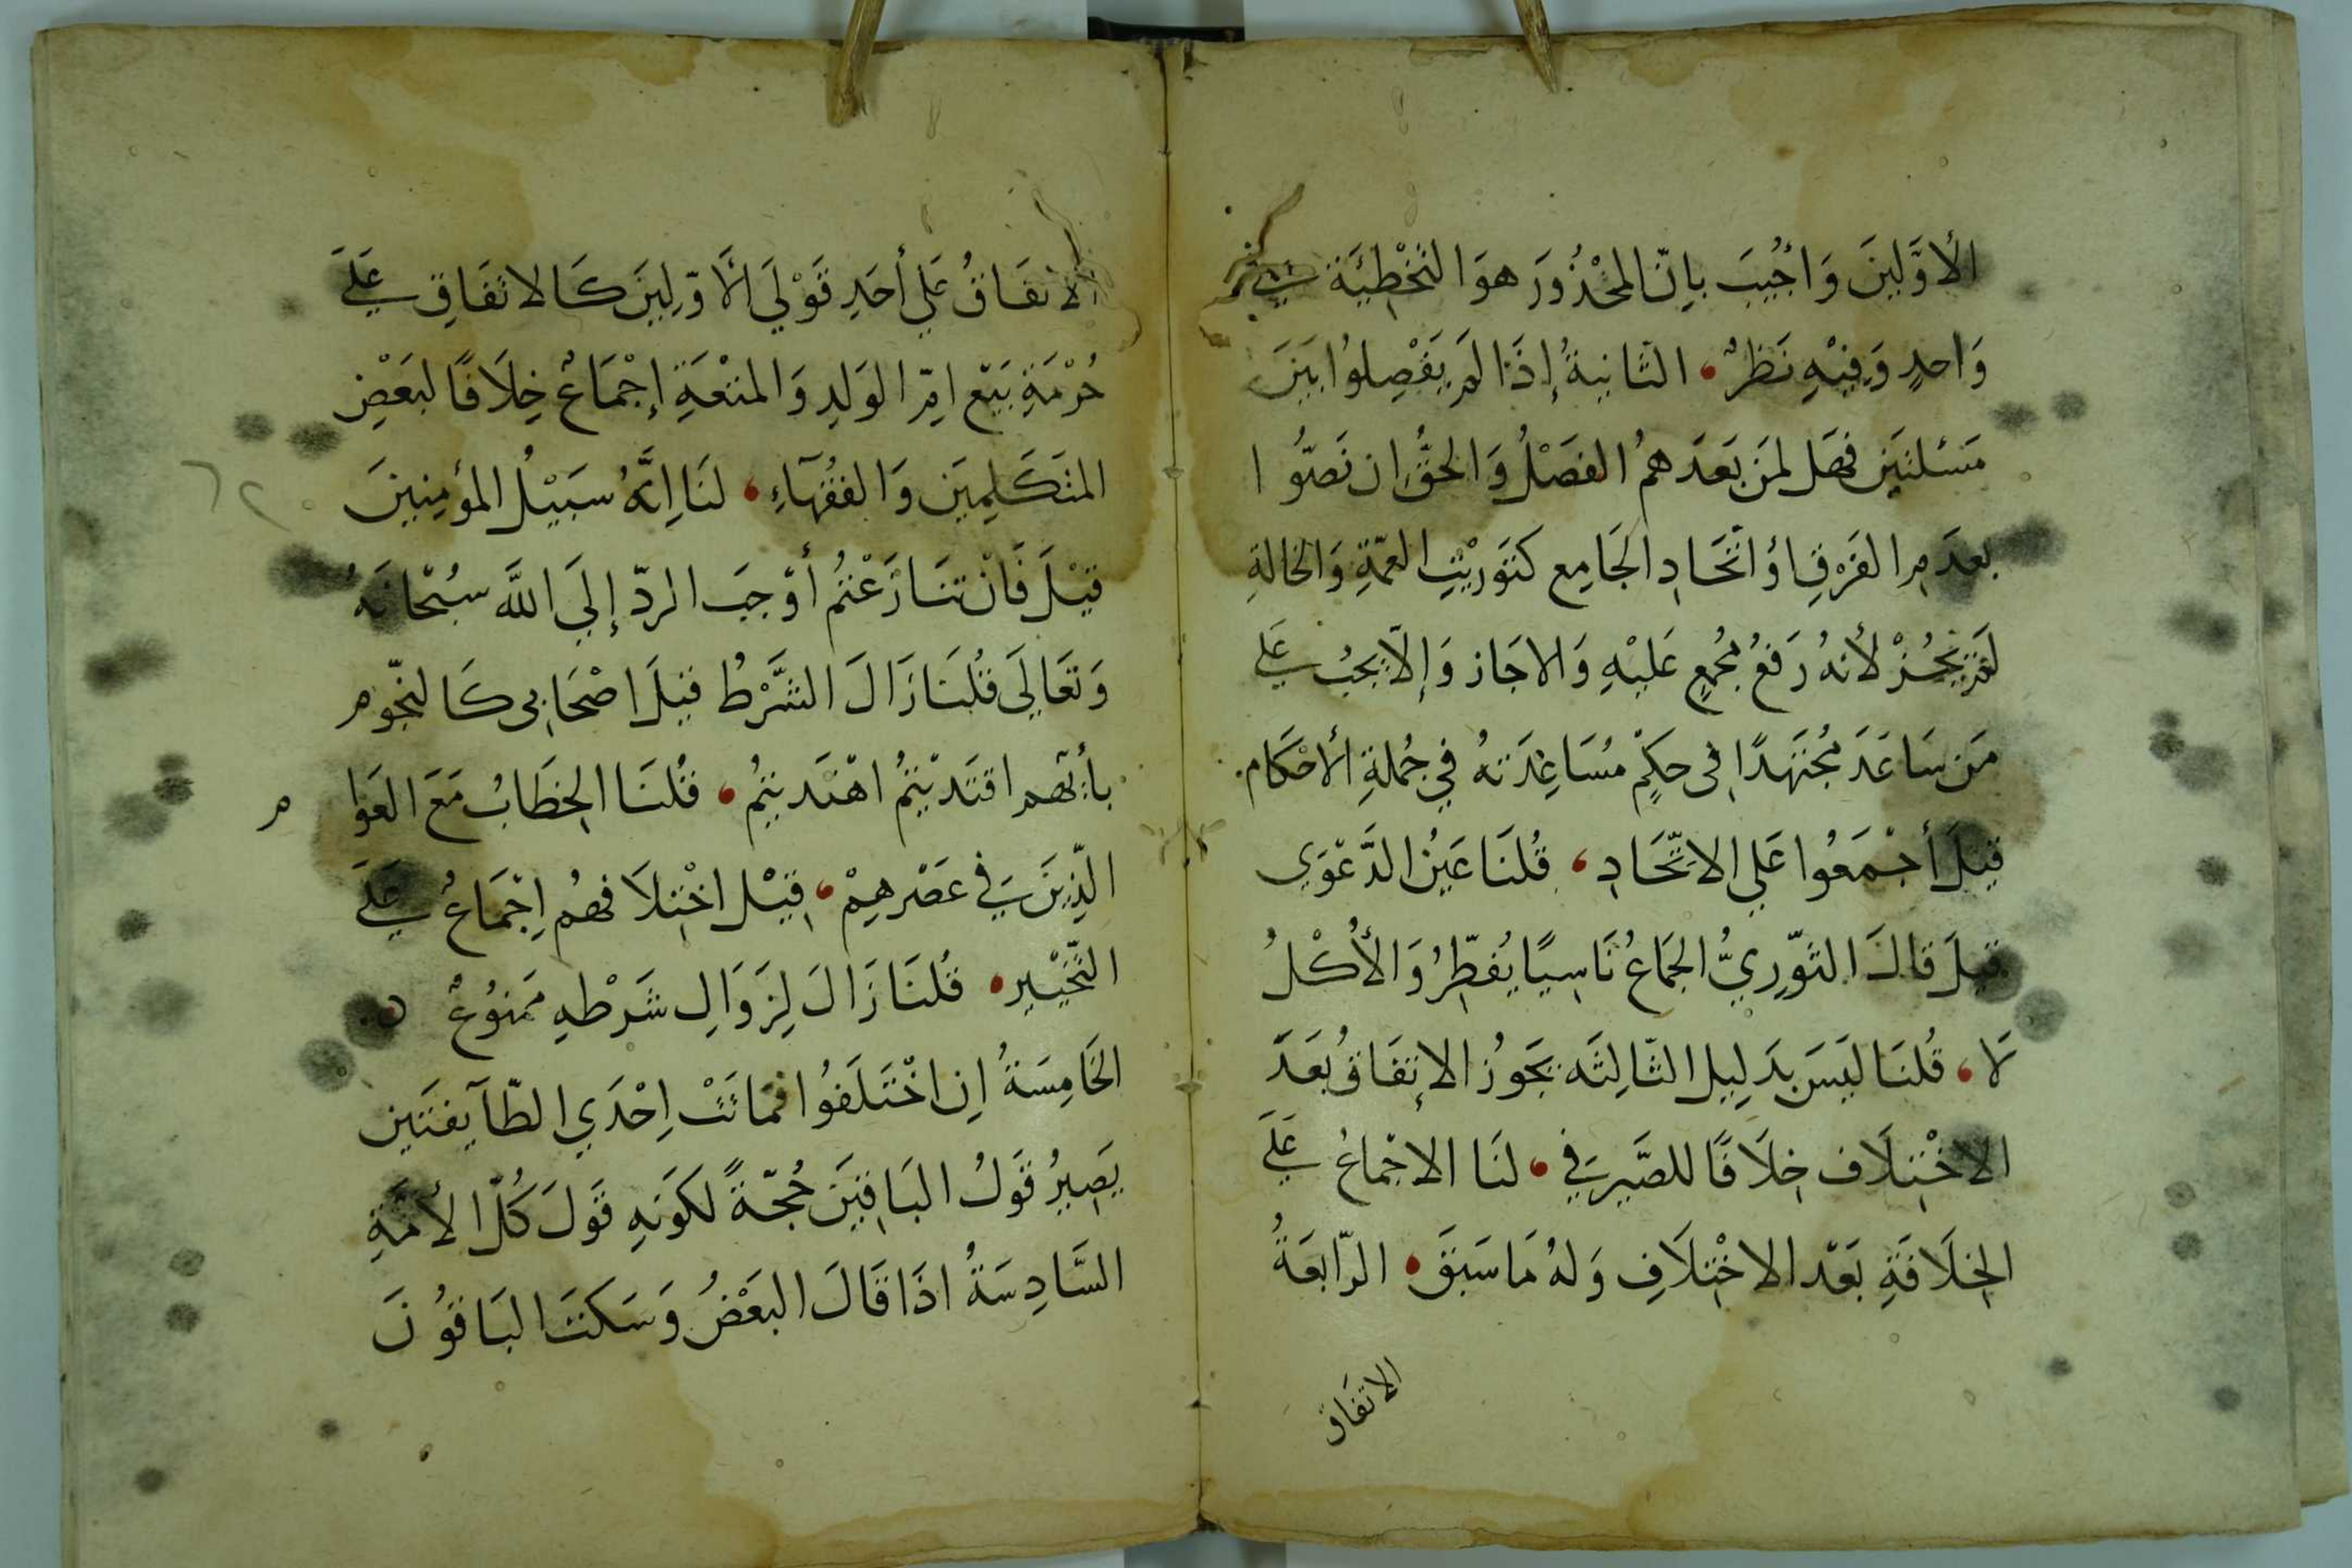 الأوَّلينَ وَاجُيبَ باِنّ المحْذُورَ هوَ التخْطِيَة في
وَاحدٍ وَفِيْهِ نَظرٌ، الثانيةُ إذَا لم يَفْصِلوُا بَينَ
مَسْئلتَين فهَل لمنَ بَعدَهمُ الفصْلُ وَالحقُّ ان نصّوُا
بعدَمِ الفَرْقِ اوُ اتّحَادِ الجَامِع كتَورْيثِ العمّةِ وَالخالةِ
لَم يَجُزْ لأنهُ رَفعُ مجُمعٍ عَليْهِ وَالاجَاز وَإلّا يَجبُ عَلي
مَن سَاعَدَ مجُتهَدًا في حكِمٍْ مُسَاعِدَتهُ في جُملةِ الأحْكَام.
قيلَ أجْمَعُوا عَلي الاتّحَادِ، قُلنَا عَينُ الدَّعْوَي
قيلَ قالَ الثوّرِيُّ الجمَاعُ نَاسِيًا يُفطِّرُ وَالأكْلُ
لَا، قُلنَا ليَسَ بدَلِيل الثّالِثَه يَجوُز الإتفَاقُ بَعدَ
الاخْتِلَاف خِلَافًا للصَّيرَفي، لنَا الاجْماعُ عَلَي
الخِلَافَةِ بَعْد الاخْتِلَافِ وَلهُ مَا سَبَقَ، الرّابعَةُ
الاتفَاق
الاتفَاقُ عَلي أحَدِ قَوْلَي الأوّلِينَ كَالاتفَاقِ عَلَي
حُرْمَةِ بَيْع امِّ الوَلدِ وَالمتعَةِ إجْمَاعٌ خِلَافًا لبَعْضِ
المتَكَلِمِيَن وَالفقُهَآءِ، لنَا اِنَّهُ سبَيْلُ المؤمِنينَ
قيْلَ فَانْ تنَازَعْتمُ أوْجَبَ الردّ إلَي اللَّه سبُحْانهُ
وَتعَالَي قُلنَا زَالَ الشَّرْطُ قيلَ اصْحَابي كَالنجّوم
بأيّهم اقتَدْيتمُ اهْتدَيتمُ، قُلنَا الخِطَابُ مَعَ العَوَا
م
الّذِينَ في عَصْرهِمْ، قيْل اخْتِلَافهُم اِجْمَاعُ عَلَي
التّخْيْيرِ، قُلنَا زَالَ لِزَوَالِ شَرْطهِ ممَنوُعٌ ٥
الخَامِسَةُ اِن اخْتَلَفوُا فمَاتَتْ اِحْدَي الطّآيفتَين
يَصِيرُ قَولُ البَاقِينَ حُجّةً لكَونهِ قَولَ كُلّ الأمّةِ
السَّادِسَةُ اذَا قَالَ البَعْضُ وَسَكتَ البَاقوُنَ